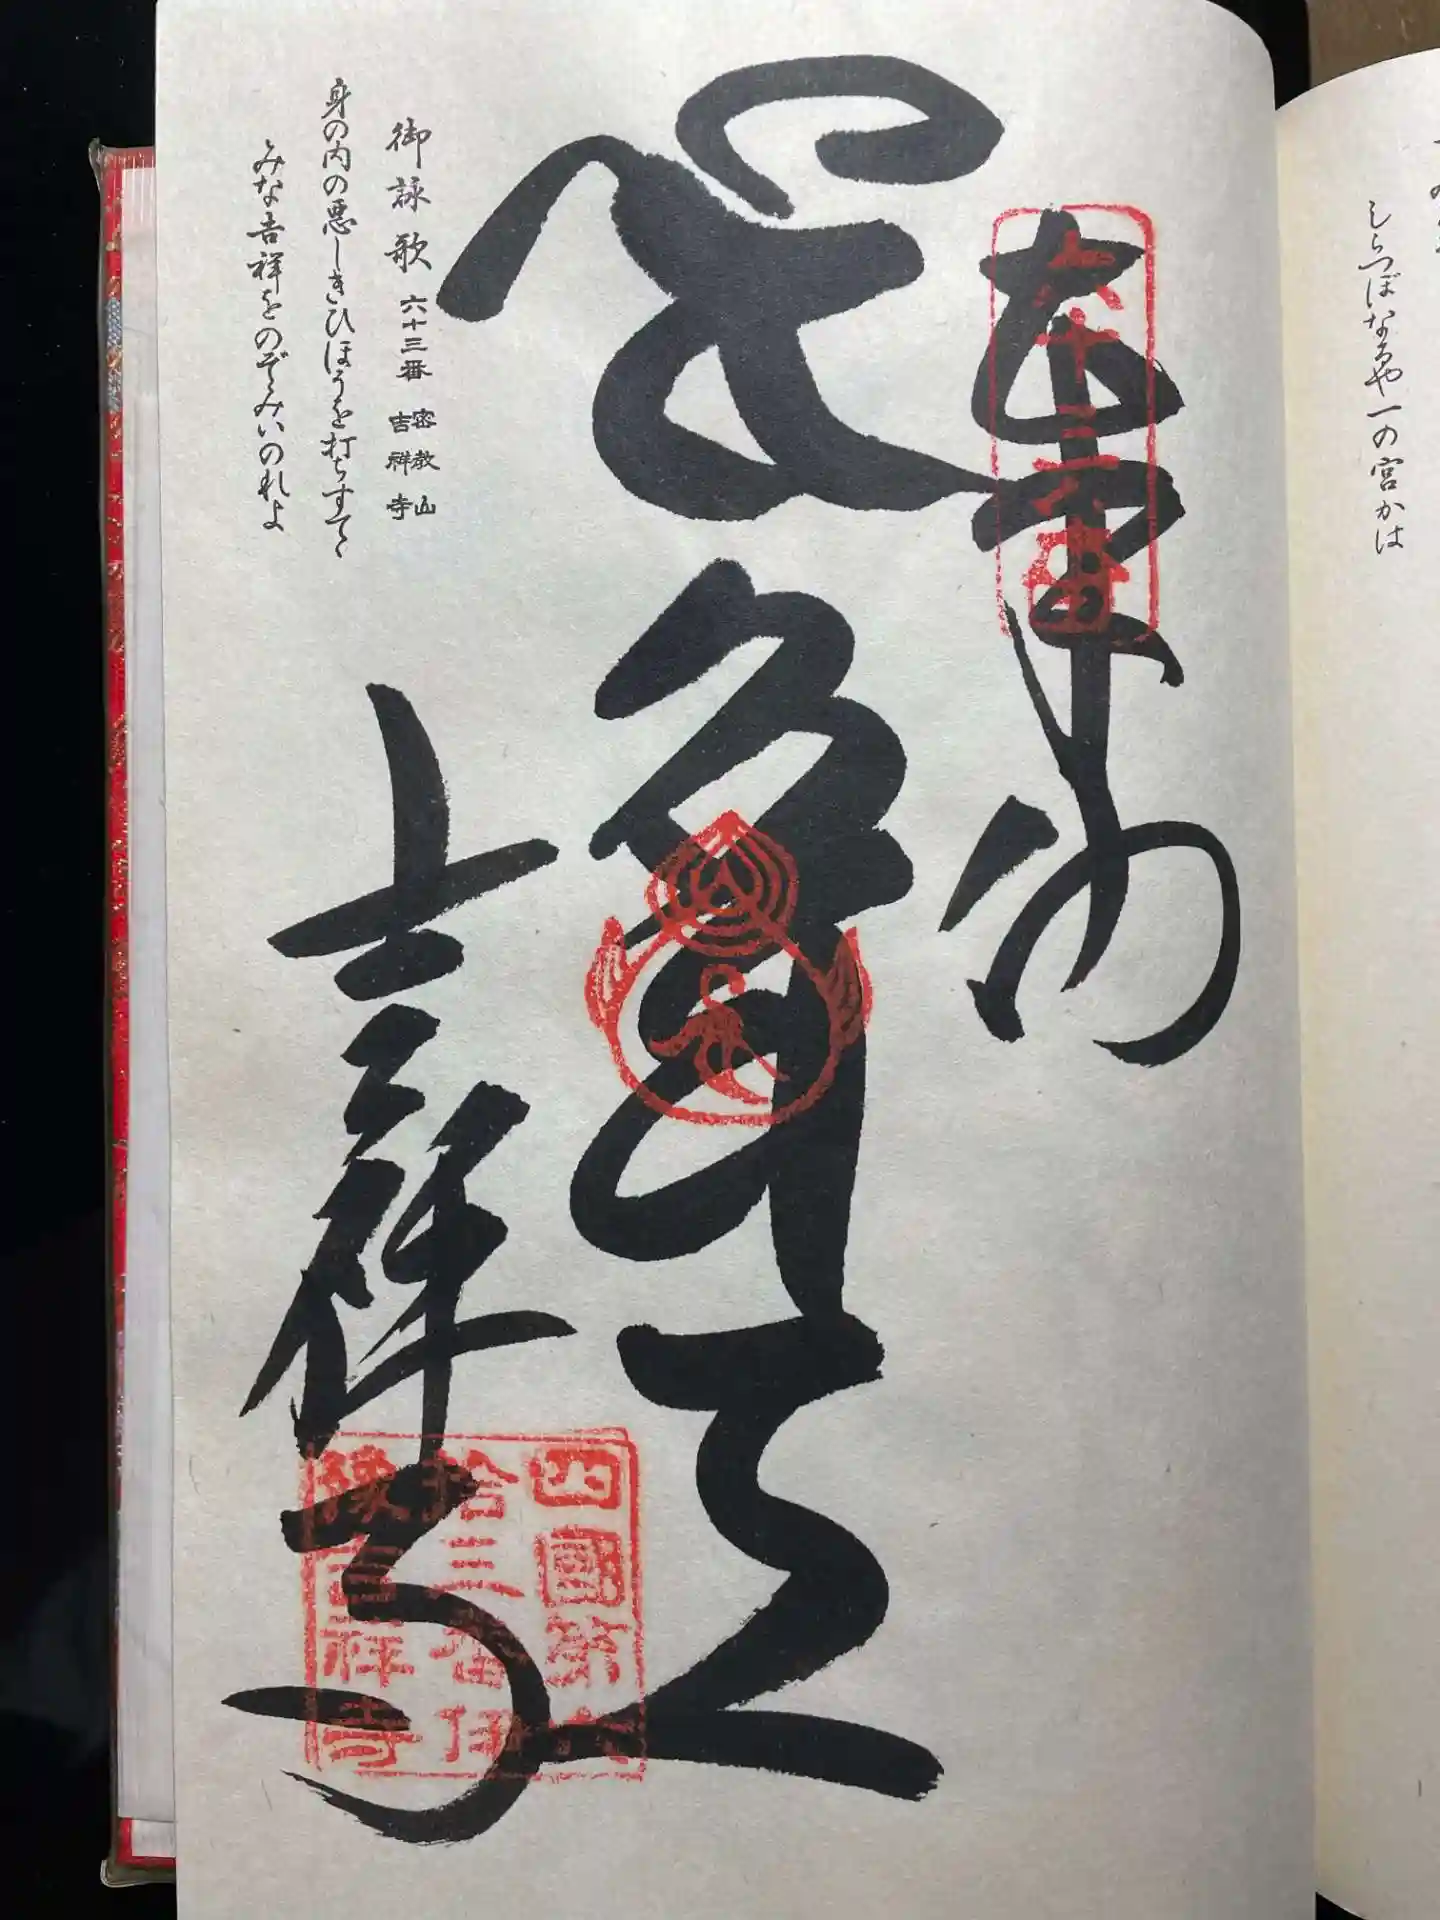 しらつぼなるや一の宮かは
六十三番
奉納
吉祥寺
四國第六
拾三番伊
豫吉祥寺
御詠歌 六十三番 密教山 吉祥寺
身の内の悪しきひほうを打ちすてゝ
みな吉祥をのぞみいのれよ